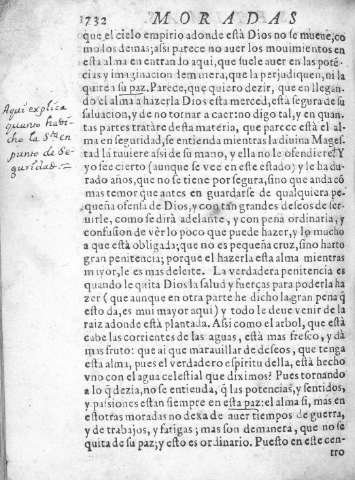 1732 MORADAS
que el cielo empirio adonde està Dios no se mueue, co
mo los demas; assi parece no auer los mouimientos en
esta alma en entrando aqui, que suele auer en las potẽ-
cias y imaginacion demanera, que la perjudiquen, ni la
quite a su paz. Parece, que quiero dezir, que en llegan-
do el alma a hazerla Dios esta merced, està segura de su
saluacion, y de no tornar a caer: no digo tal, y en quan-
tas partes tratàre desta materia, que parece està el al-
ma en seguridad, se entienda mientras la diuina Mages-
tad la tuuiere assi de su mano, y ella no le ofendiere. Y
yo sè cierto (aunque se vee en este estado) y le ha du-
rado años, que no se tiene por segura, sino que anda cõ
mas temor que antes en guardarse de qualquiera pe-
queña ofensa de Dios, y con tan grandes deseos de ser-
uirle, como se dirà adelante, y con pena ordinaria, y
confusion de vèr lo poco que puede hazer, y lo mucho
a que està obligada; que no es pequeña cruz, sino harto
gran penitencia; porque el hazerla esta alma mientras
mayor, le es mas deleite. La verdadera penitencia es
quando le quita Dios la salud y fuerças para poderla ha
zer (que aunque en otra parte he dicho la gran pena q̃
esto da, es mui mayor aqui) y todo le deue venir de la
raiz adonde està plantada. Assi como el arbol, que està
cabe las corrientes de las aguas, està mas fresco, y dà
mas fruto: que ai que marauillar de deseos, que tenga
esta alma, pues el verdadero espiritu della, està hecho
vno con el agua celestial que diximos? Pues tornando
a lo q̃ dezia, no se entienda, q̃ las potencias, y sentidos,
y passiones estan siempre en esta paz: el alma si, mas en
estotras moradas no dexa de auer tiempos de guerra,
y de trabajos, y fatigas; mas son demanera, que no se
quita de su paz; y esto es ordinario. Puesto en este cen-
tro
Aqui explica
quanto ha di-
cho la Sta en
punto de Se-
guridad.